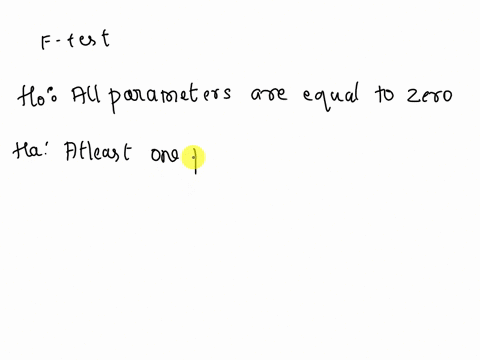 F-test
Ho: All parameters are equal to zero
Ha: Atleast one